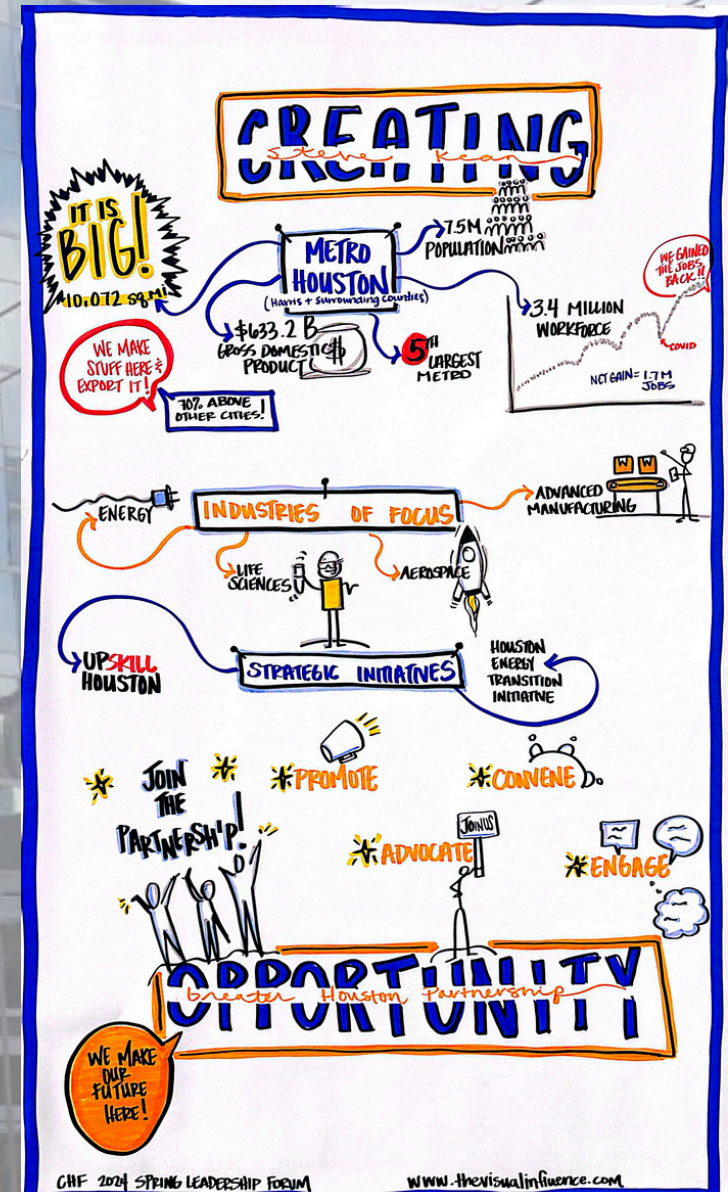 CREATING
Steve Kean
IT IS
BIG!
10,072 SQ MI
METRO
HOUSTON
(Harris + Surrounding Counties)
7.5M
POPULATION
WE GAINED
THE JOBS
BACK!!
3.4 MILLION
WORKFORCE
COVID
NET GAIN = 1.7M
JOBS
$633.2 B
GROSS DOMESTIC
PRODUCT
$
5TH
LARGEST
METRO
WE MAKE
STUFF HERE &
EXPORT IT!
70% ABOVE
OTHER CITIES!
INDUSTRIES OF FOCUS
ENERGY
ADVANCED
MANUFACTURING
LIFE
SCIENCES
AEROSPACE
STRATEGIC INITIATIVES
UPSKILL
HOUSTON
HOUSTON
ENERGY
TRANSITION
INITIATIVE
JOIN
THE
PARTNERSHIP!
PROMOTE
CONVENE
ADVOCATE
JOIN US
ENGAGE
OPPORTUNITY
Greater Houston Partnership
WE MAKE
OUR
FUTURE
HERE!
CHF 2024 SPRING LEADERSHIP FORUM
www.thevisualinfluence.com